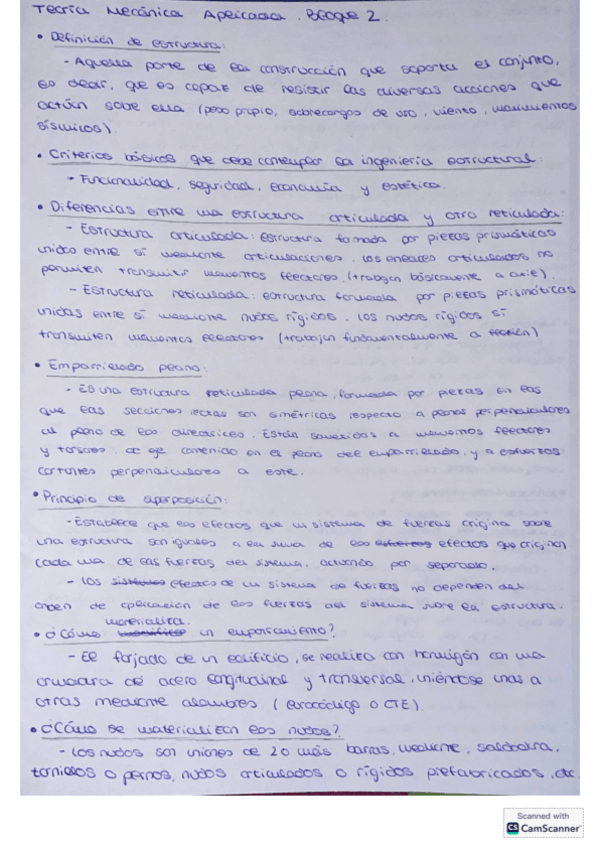 Teoría Mecánica Aplicada. Bloque 2.
• Definición de estructura:
- Aquella parte de la construcción que soporta el conjunto,
es decir, que es capaz de resistir las diversas acciones que
actúan sobre ella (peso propio, sobrecargas de uso, viento, movimientos
sísmicos).
• Criterios básicos que debe contemplar la ingeniería estructural
- Funcionalidad, seguridad, economía y estética.
• Diferencias entre una estructura articulada y otra reticulada:
- Estructura articulada: estructura formada por piezas prismáticas
unidas entre sí mediante articulaciones. Los enlaces articulados no
permiten transmitir momentos flectores. (trabajan básicamente a axil).
- Estructura reticulada: estructura formada por piezas prismáticas
unidas entre sí mediante nudos rígidos. Los nudos rígidos sí
transmiten momentos flectores (trabajan fundamentalmente a flexión)
• Emparrillado plano:
- Es una estructura reticulada plana, formada por piezas en las
que las secciones rectas son simétricas respecto a planos perpendiculares
al plano de las directrices. Están sometidas a momentos flectores
y torsores, de eje contenido en el plano del emparrillado, y a esfuerzos
cortantes perpendiculares a este.
• Principio de superposición:
- Establece que los efectos que un sistema de fuerzas origina sobre
una estructura son iguales a la suma de los esfuerzos efectos que originan
cada una de las fuerzas del sistema, actuando por separado.
- Los sistemas efectos de un sistema de fuerzas no dependen del
orden de aplicación de las fuerzas del sistema sobre la estructura.
materializa
• ¿Cómo un emparrillado?
- El forjado de un edificio, se realiza con hormigón con una
armadura de acero longitudinal y transversal, uniéndose unas a
otras mediante alambres. (Eurocódigo o CTE).
• ¿Cómo se materializan los nudos?
- Los nudos son uniones de 2 o más barras, mediante, soldadura,
tornillos o pernos, nudos articulados o rígidos prefabricados, etc.
Scanned with
CS CamScanner